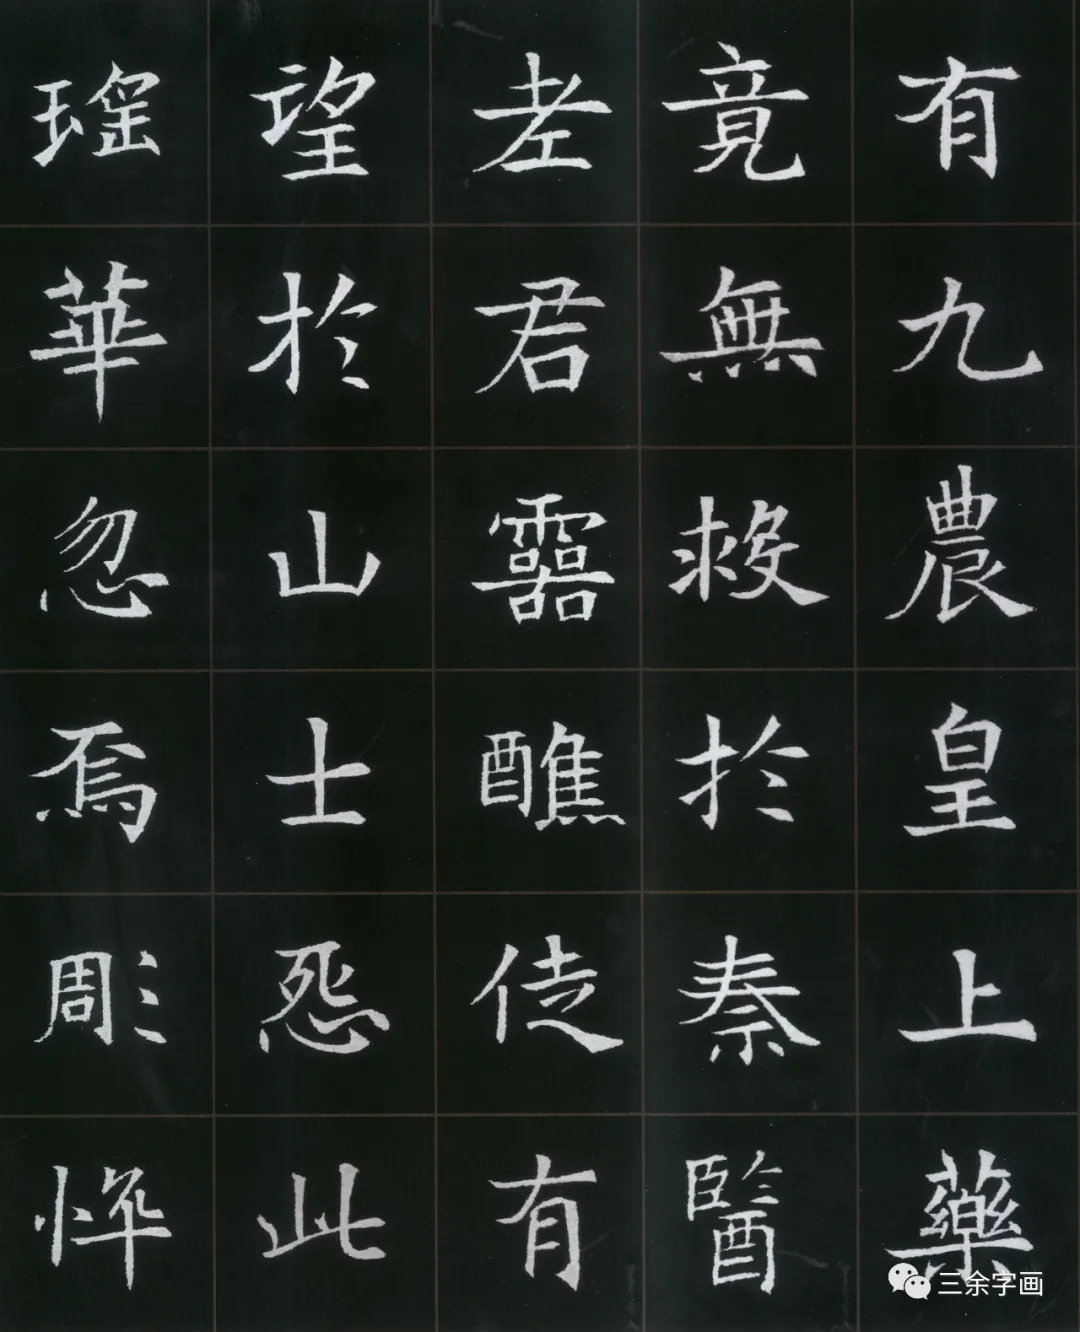 有九農皇上藥
竟無救於秦醫
老君靈醮徒有
望於山士怨此
瑤華忽焉彫悴
三余字画